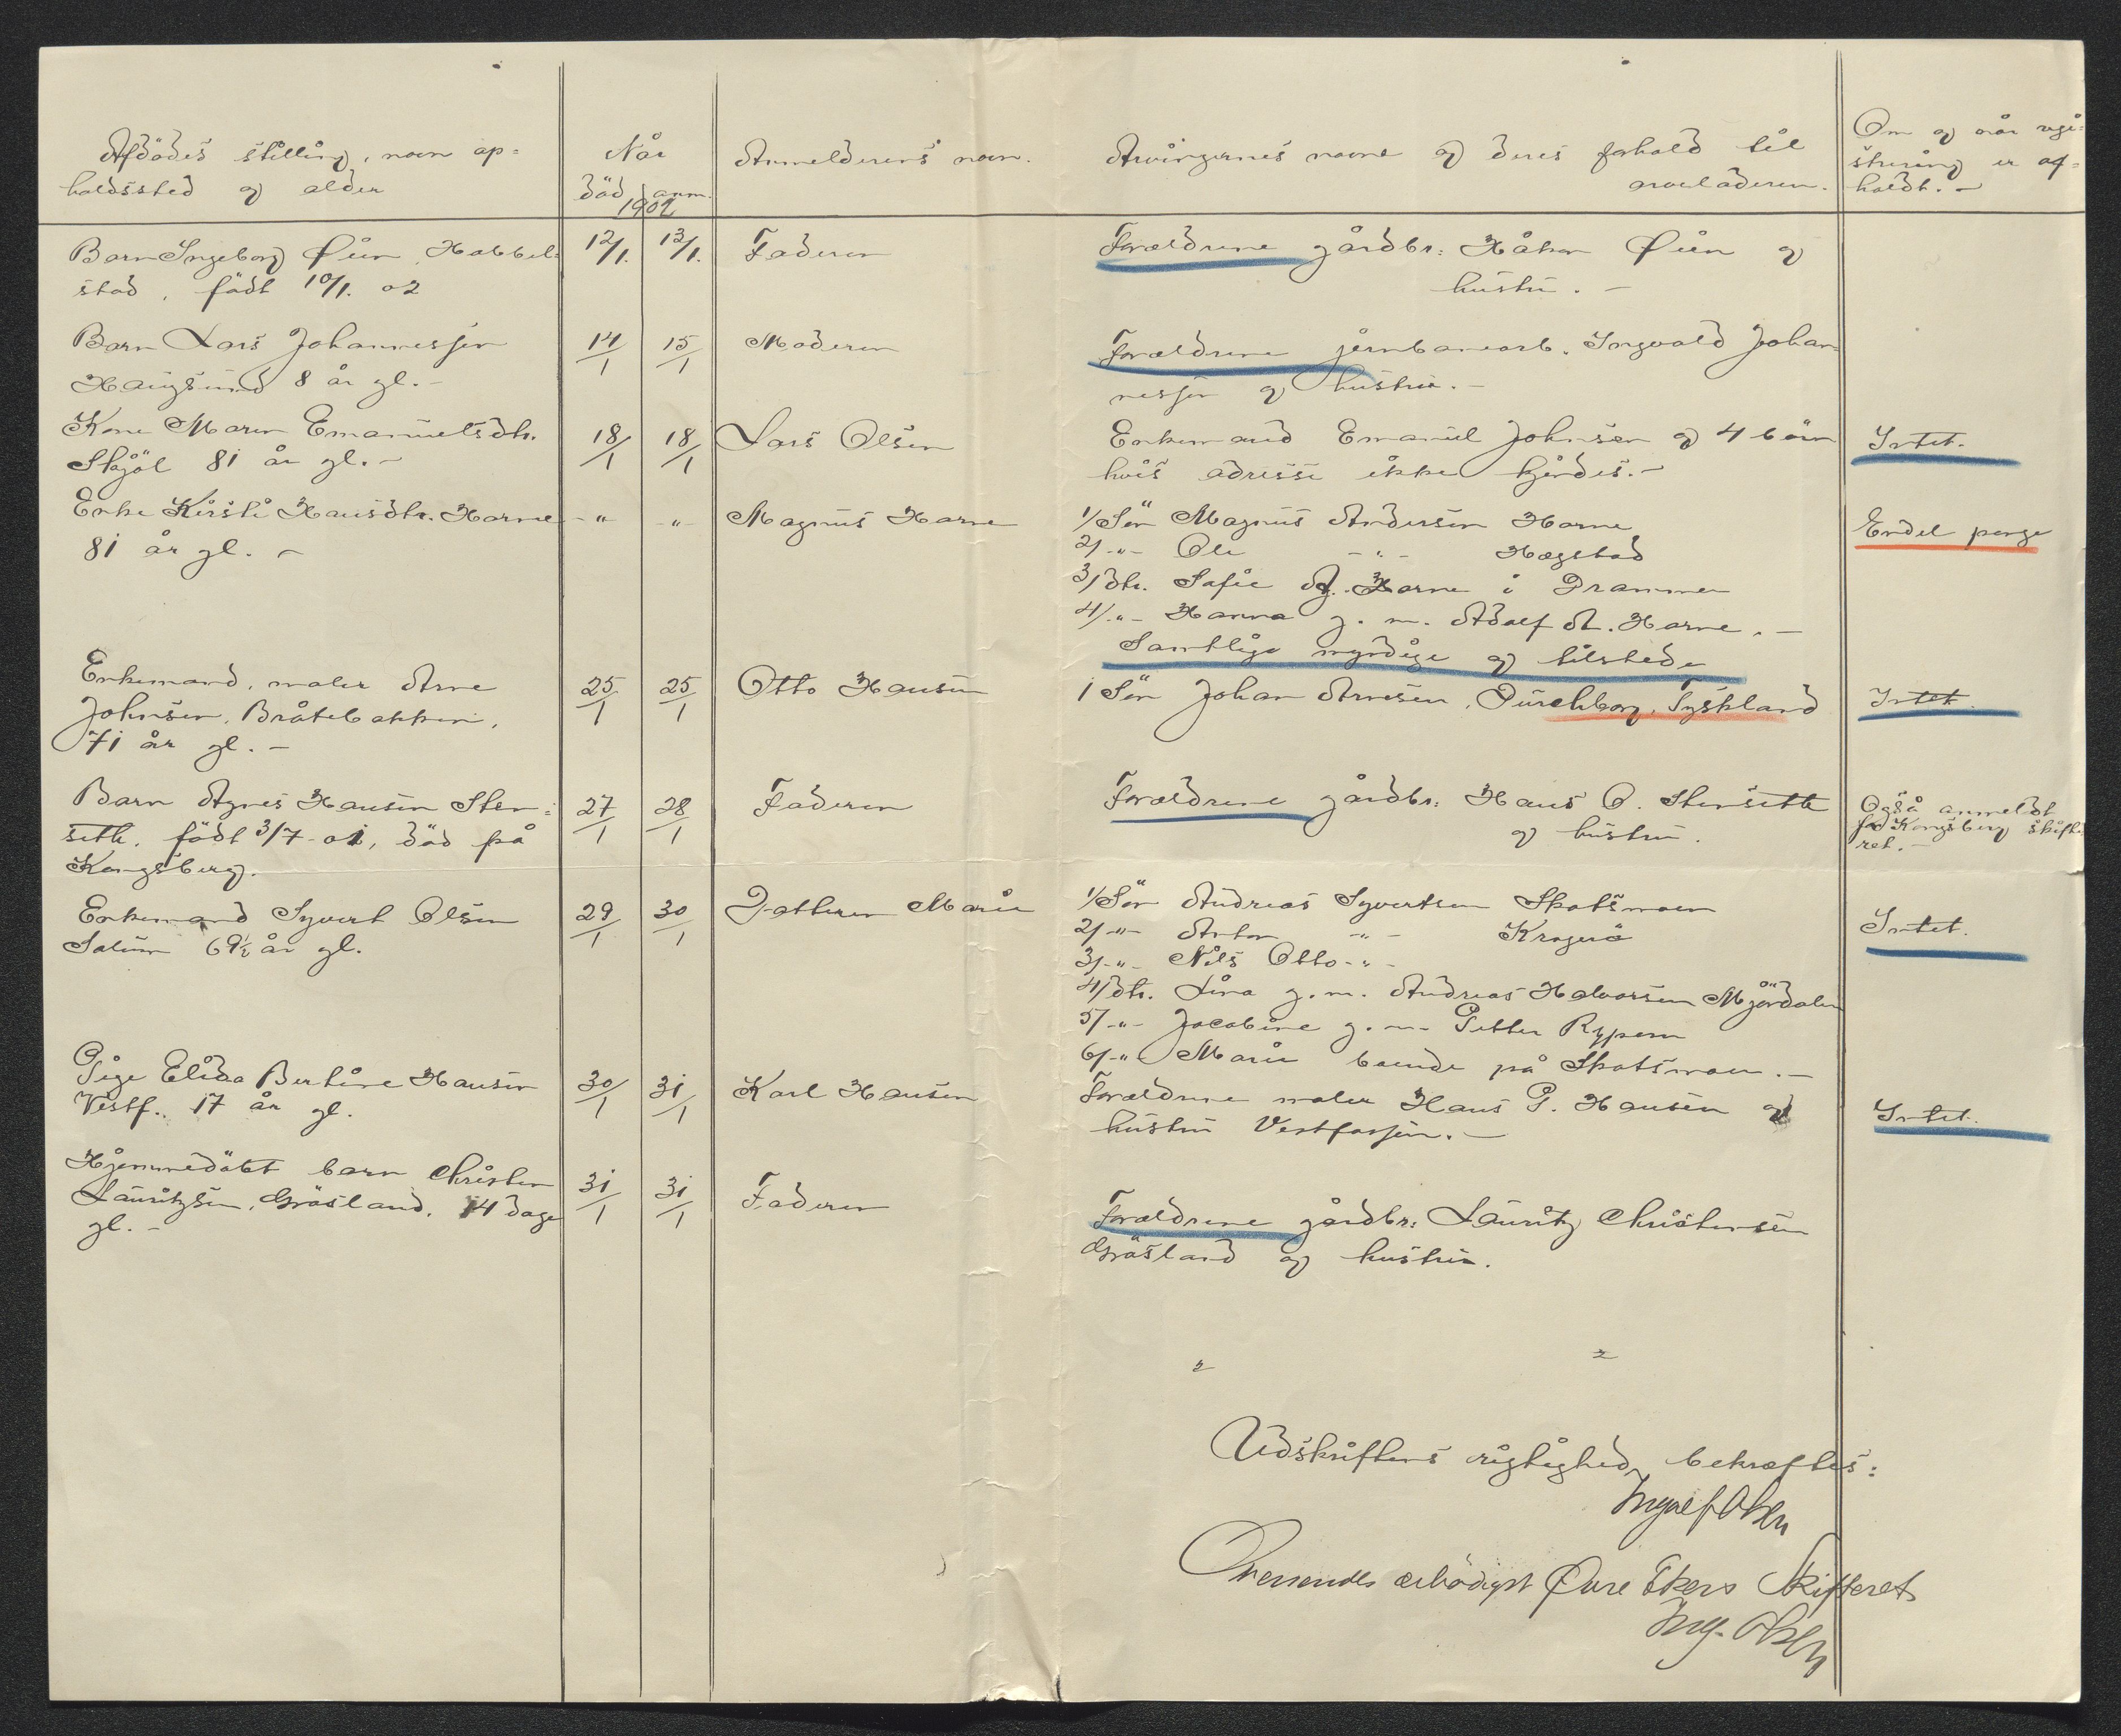 Afdödes stilling, navn op=
holdssted og alder
Når
död anm.
1902
Anmelderens navn.
Arvingernes navne og deres forhold til
arveladeren.
Om og når regi=
strering er af=
holdt. -
Barn Ingeborg Øen, Habbel=
stad, födt 10/1. 02
12/1. 13/1.
Faderen
Forældrene gårdbr: Håkon Øen og
hustru. -
Barn Lars Johannessen
Haugsund 8 år gl. -
14/1 15/1
Moderen
Forældrene jernbanearb. Ingvald Johan
nessen og hustru. -
Kone Maren Emanuelsdtr.
Skjöl 81 år gl. -
18/1 18/1
Lars Olsen
Enkemand Emanuel Johnsen og 4 börn
hvis adresse ikke kjendes. -
Intet.
Enke Kirsti Hansdtr. Harne
81 år gl. -
-"- -"-
Magnus Harne
1/ Sön Magnus Andersen Horne
2/ -"- Ole -"- Hægstad
3/ dtr. Sofie A. Horne i Drammen
4/ -"- Hanna g. m. Adolf A. Horne. -
Samtlige myndige og tilstede
Endel penge
Enkemand, maler Arne
Johnsen, Bråtebakken,
71 år gl. -
25/1 25/1
Otto Hansen
1 Sön Johan Arnesen, Tyskland
Intet.
Barn Agnes Hansen Sten=
seth, födt 3/7-01, död på
Kongsberg.
27/1 28/1
Faderen
Forældrene gårdbr: Hans O. Stenseth
og hustru.
Også anmeldt
for Kongsberg skifte
ret. -
Enkemand Syvert Olsen
69½ år gl.
29/1 30/1
Datteren Marie
1/ Sön Andreas Syvertsen Skotsmoen
2/ -"- Anton -"- Kragerö
3/ -"- Nils Otto -"-
4/ dtr. Lina g. m. Andreas Halvorsen Mjöndalen
5/ -"- Jacobine g. m. Petter Rypern
6/ -"- Marie boende på Skotsmoen. -
Intet.
Pige Elida Bertine Hansen
Vestf. 17 år gl.
30/1 31/1
Karl Hansen
Forældrene maler Hans P. Hansen og
hustru Vestfossen. -
Intet.
Hjemmedöbt barn Christen
Lauritzsen, Gräsland, 14 dage
gl. -
31/1 31/1
Faderen
Forældrene gårdbr: Lauritz Christensen
Gräsland og hustru.
Udskriftens rigtighed bekræftes:
Ingolf
Oversendes ærbödigst Övre Ekers Skifteret
Ing.